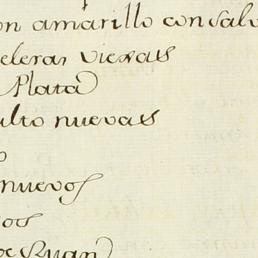 on amarillo con salv
eleras viexas
Plata
ulto nuevas
o
nuevos
sos
de Ruan